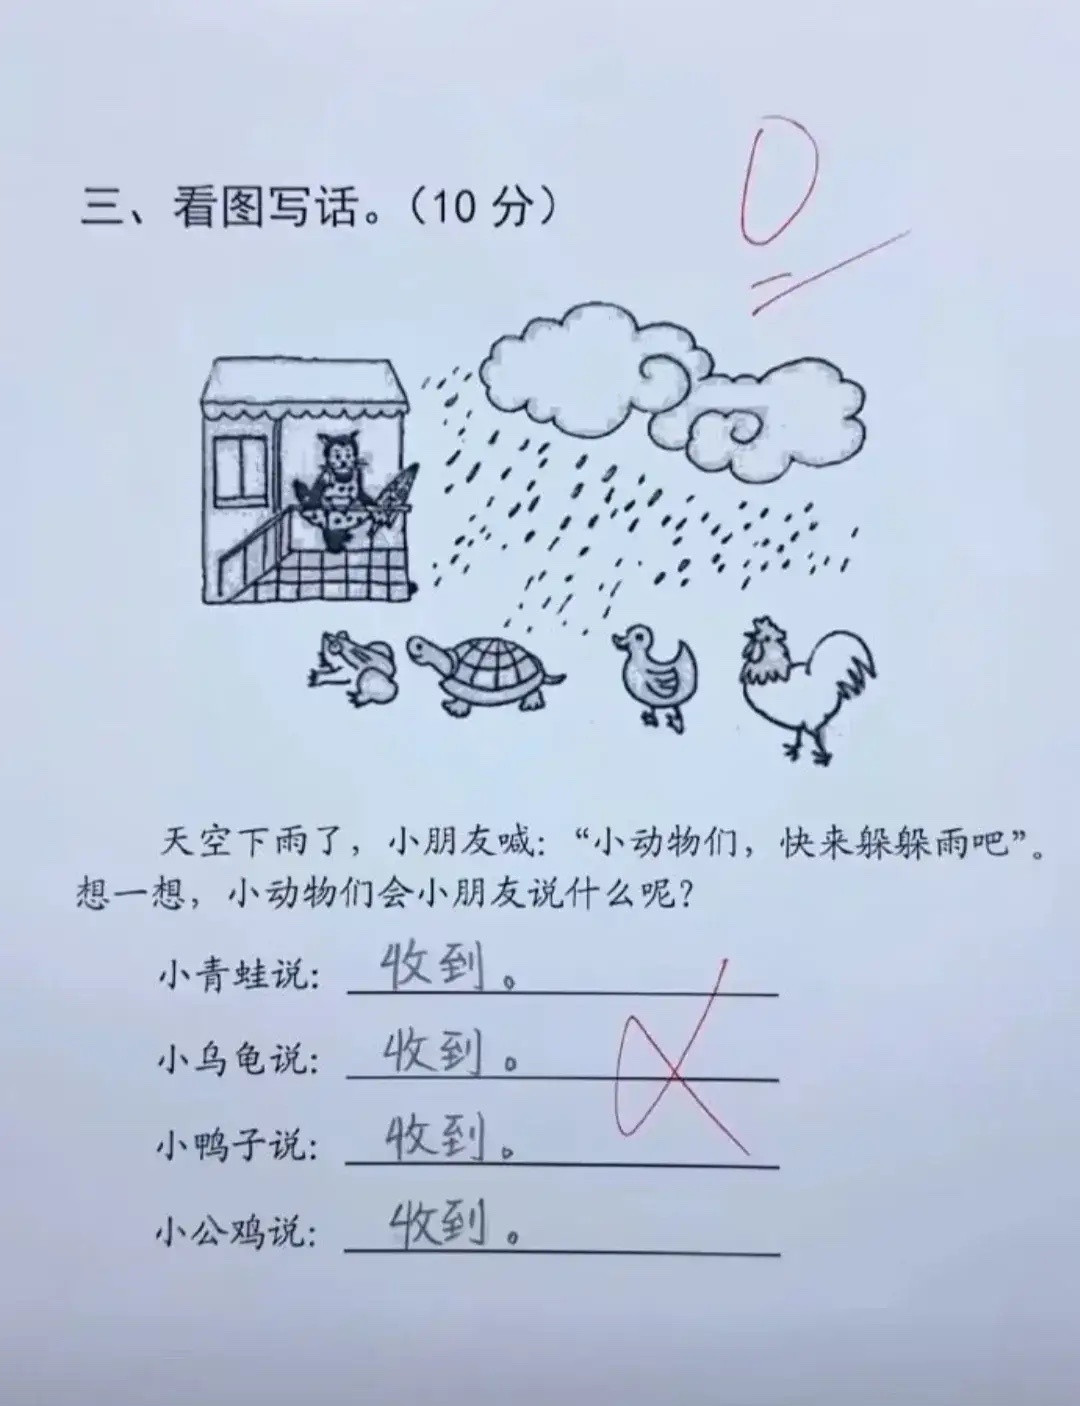 三、看图写话。（10 分）
0
天空下雨了，小朋友喊：“小动物们，快来躲躲雨吧”。
想一想，小动物们会小朋友说什么呢？
小青蛙说：收到。
小乌龟说：收到。
小鸭子说：收到。
小公鸡说：收到。